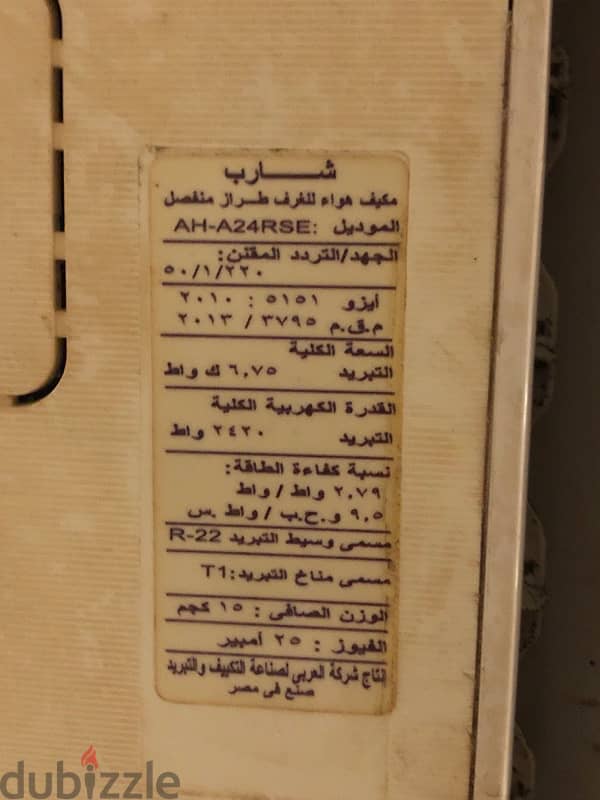 شـــــارب
مكيف هواء للغرف طـراز منفصل
الموديل :AH-A24RSE
الجهد/التردد المقنن:
٥٠/١/٢٢٠
أيزو ٥١٥١ : ٢٠١٠
م.ق.م ٣٧٩٥ / ٢٠١٣
السعة الكلية
التبريد ٦,٧٥ ك واط
القدرة الكهربية الكلية
التبريد ٢٤٢٠ واط
نسبة كفاءة الطاقة:
٢,٧٩ واط / واط
٩,٥ و.ح.ب / واط .س
مسمى وسيط التبريد R-22
مسمى مناخ التبريد:T1
الوزن الصافى : ١٥ كجم
الفيوز : ٢٥ أمبير
إنتاج شركة العربي لصناعة التكييف والتبريد
صنع فى مصر
dubizzle